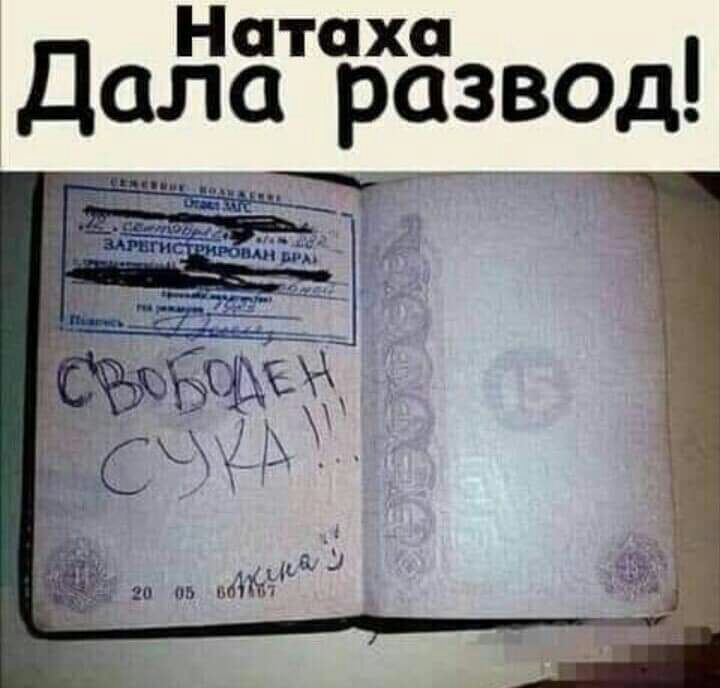 Натаха
Дала развод!
СЕМЕЙНОЕ ПОЛОЖЕНИЕ
Отдел ЗАГС
12 сентября
ЗАРЕГИСТРИРОВАН БРА
год рождения
Подпись
СВОБОДЕН
СУКА!!!
жена
20 05 601167